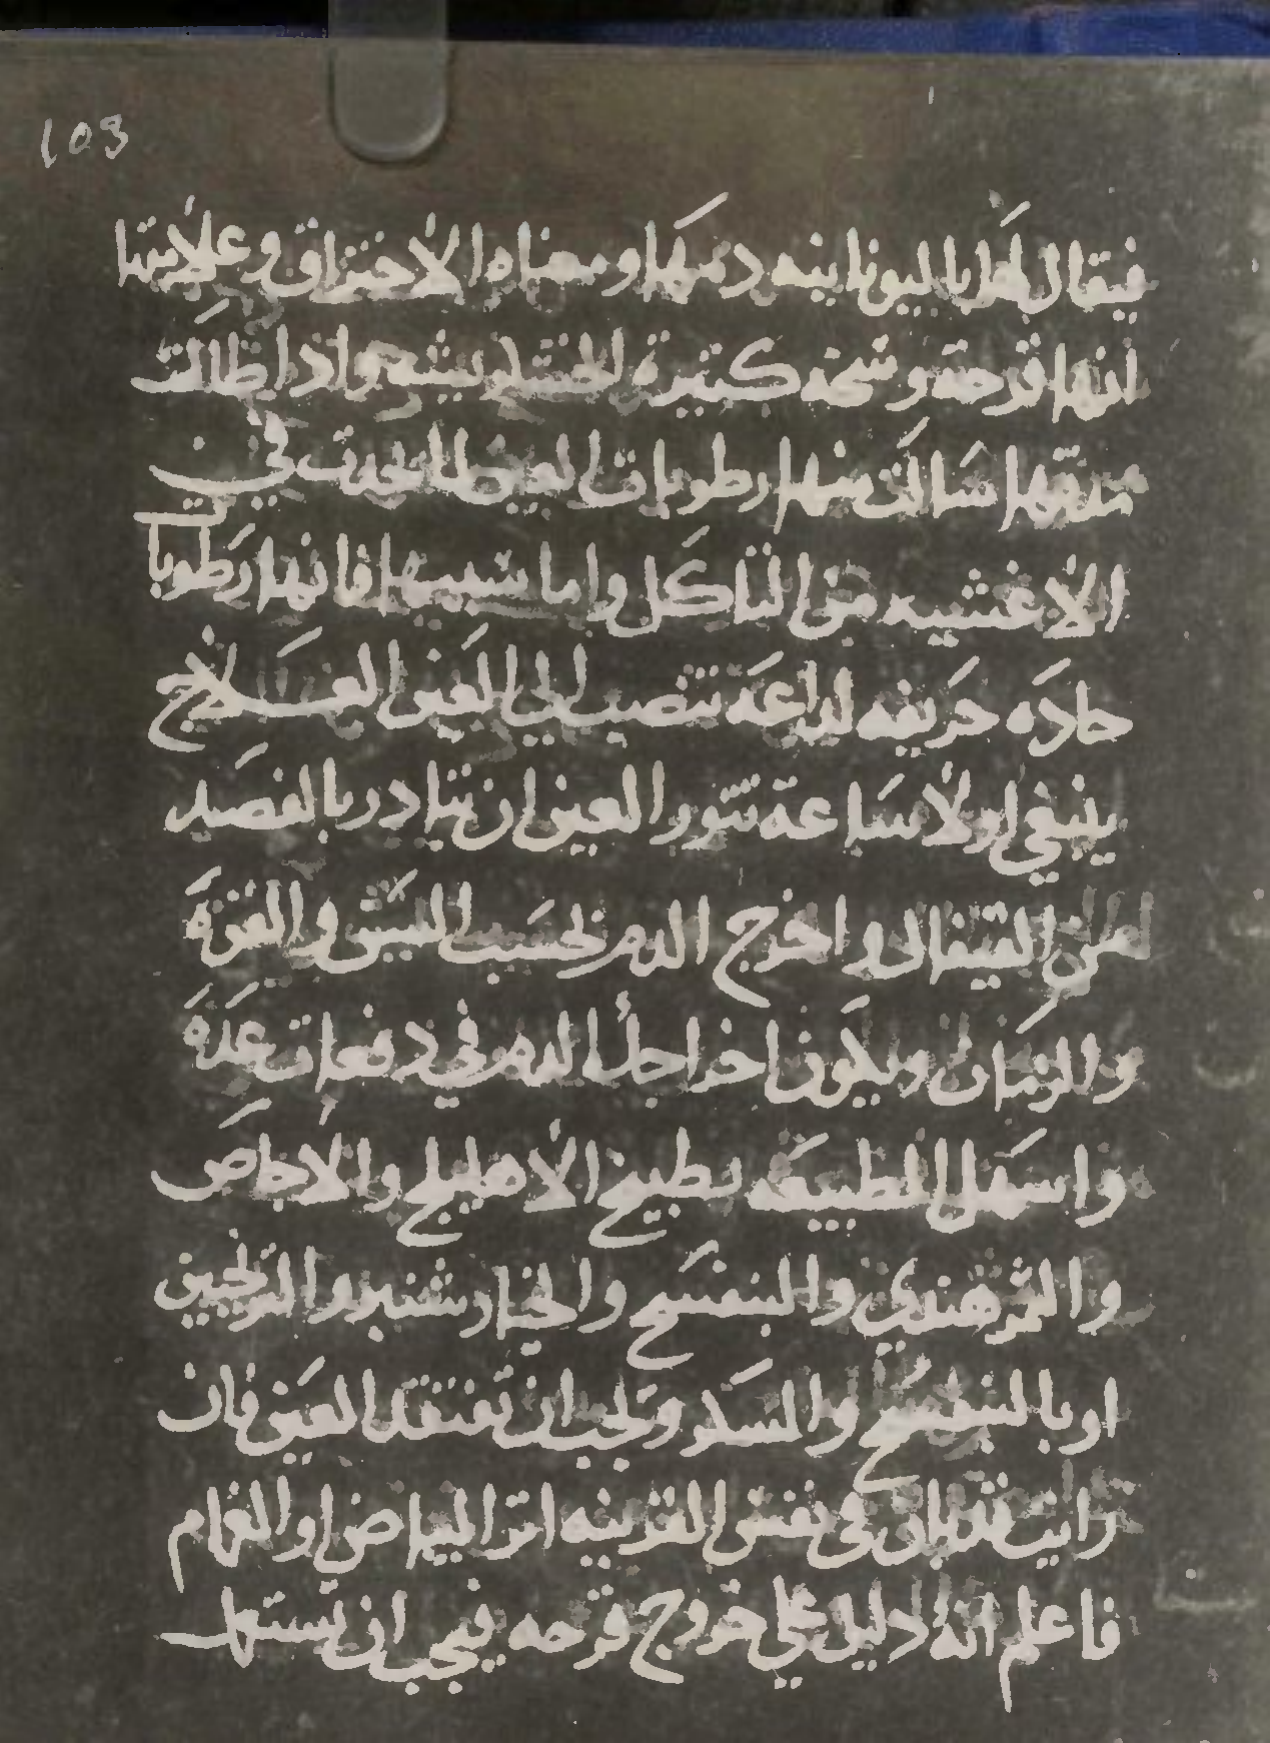 103
فيقال لها باليونانيه ومعناه الاحتراق وعلامتها
انها قرحه وسخه كثيرة واذا طالت
مدتها سالت منها رطوبات العين لما يحدث في
الاغشيه من التاكل واما سببها فانها رطوبا
حاده حريفه لداعة تنصب الى العين العلاج
ينبغي اولا ساعة تثور العين ان تبادر بالفصد
من القيفال واخرج الدم بحسب السن والقوة
والزمان ويكون اخراجك الدم في دفعات عدة
واسهل الطبيعه بطبيخ الاهليلج والاجاص
والتمرهندي والبنفسج والخيارشنبر والترنجبين
او بالبنفسج والسكر ويجب ان تفتقد العين فان
رايت في نفس القرنيه اثر البياض او الغمام
فاعلم انه دليل على خروج قرحه فيجب ان تستعمل